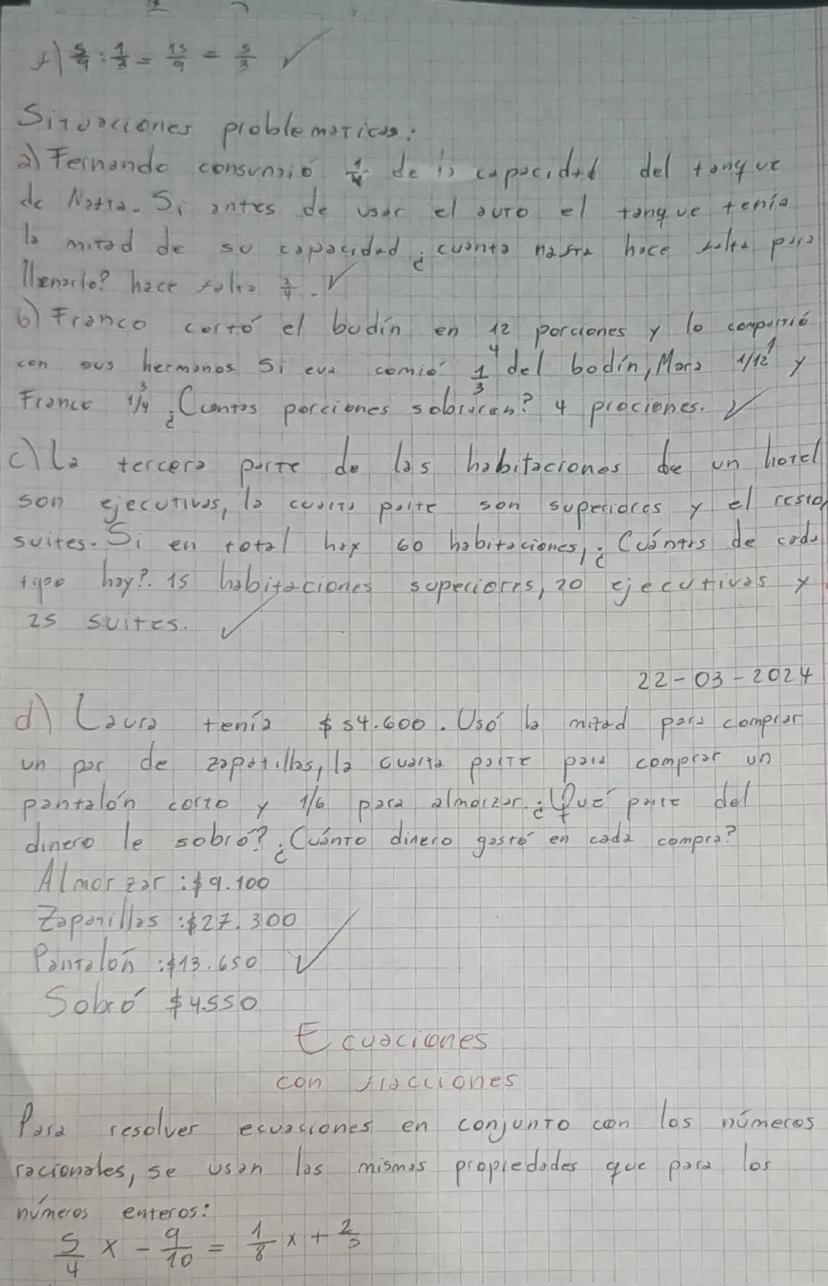 f) 5/4 : 1/3 = 15/9 = 5/3 ✓
Situaciones problematicas:
a) Fernando consumió 1/4 de la capacidad del tanque
de Nafta. Si antes de usar el auto el tanque tenía
la mitad de su capacidad ¿cuánta nafta hace falta para
llenarlo? hace falta 3/4. ✓
b) Franco cortó el budín en 12 porciones y lo compartió
con sus hermanos Si eva comió 1/3 4 del bodín, Mara 1/12 1 y
Franco 1/4 3 ¿Cuantas porciones sobraran? 4 prociones. ✓
c) La tercera parte de las habitaciones de un hotel
son ejecutivas, la cuarta parte son superiores y el resto,
suites. Si en total hay 60 habitaciones, ¿Cuántas de cada
tipo hay?. 15 habitaciones superiores, 20 ejecutivas y
25 suites. ✓
22-03-2024
d) Laura tenía $54.600. Usó la mitad para comprar
un par de zapatillas, la cuarta parte para comprar un
pantalón corto y 1/6 para almorzar. ¿Qué parte del
dinero le sobró? ¿Cuánto dinero gastó en cada compra?
Almorzar: $9.100
Zapatillas: $27.300
Pantalón: $13.650 ✓
Sobró $4.550
Ecuaciones
con fracciones
Para resolver ecuaciones en conjunto con los números
racionales, se usan las mismas propiedades que para los
números enteros:
5/4 x - 9/10 = 1/8 x + 2/5